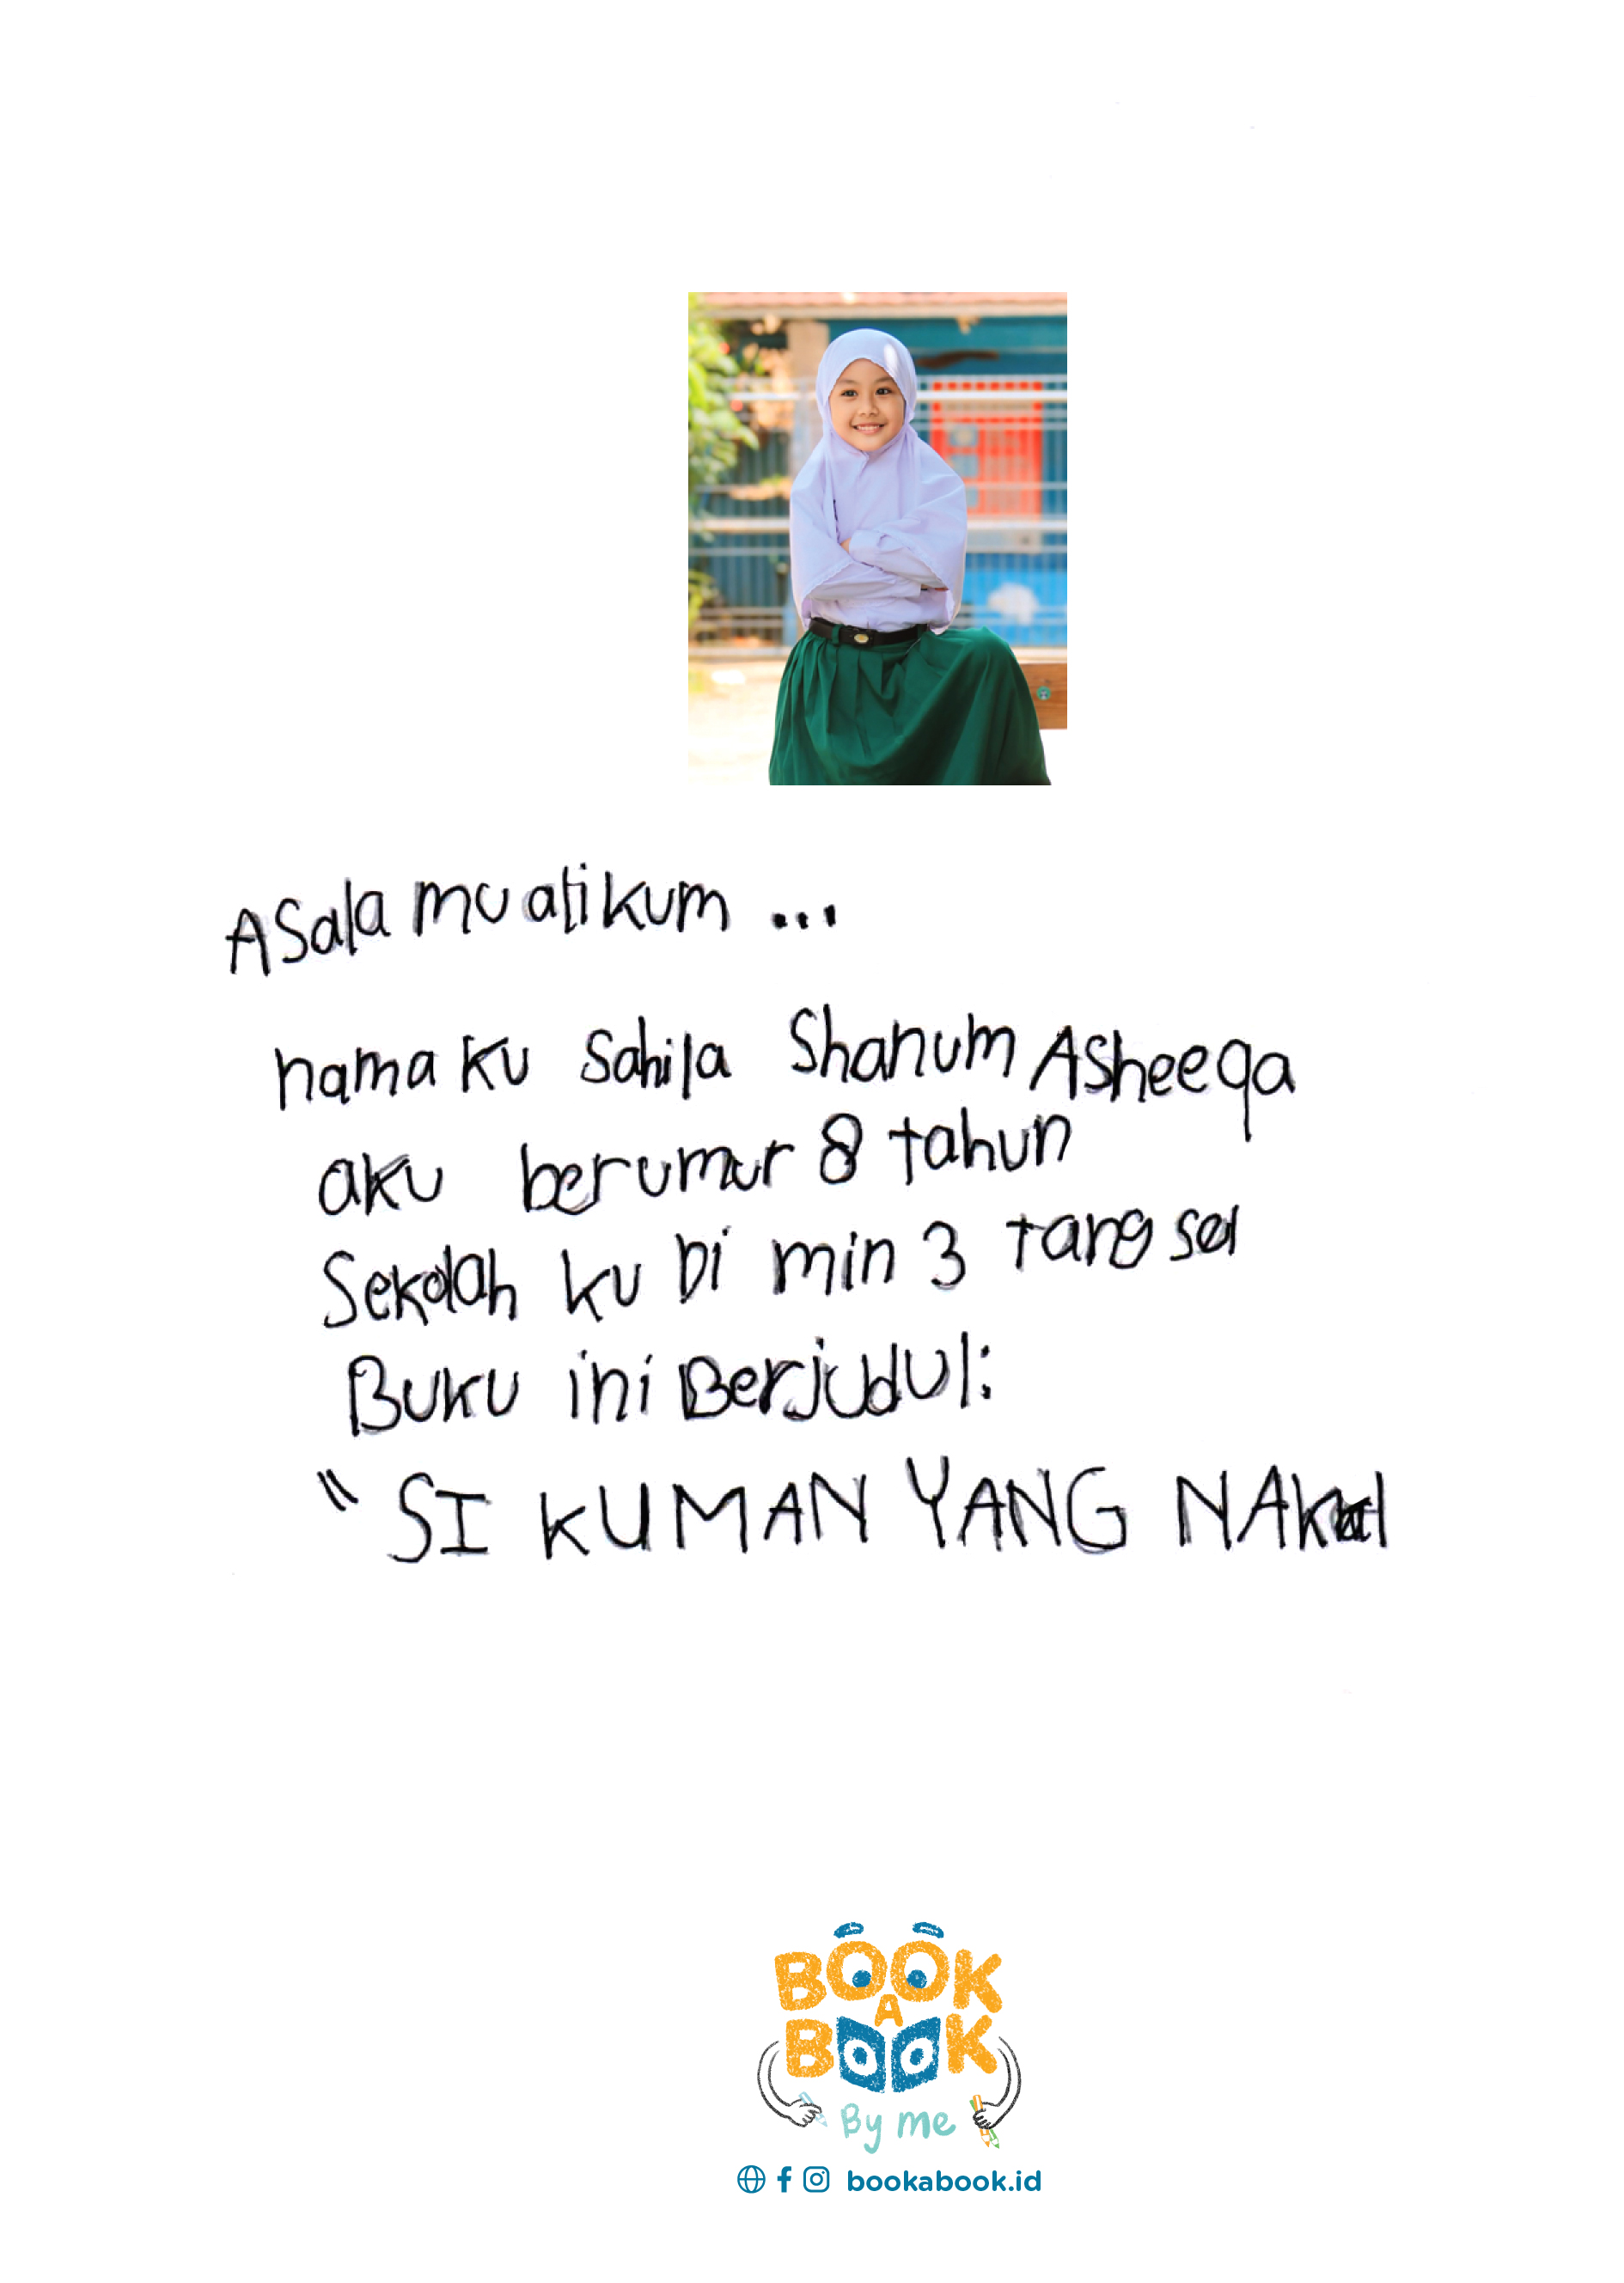 Asalamualikum ...
namaku Sahila Shanum Asheeqa
aku berumur 8 tahun
Sekolah ku Di min 3 tangsel
Buku ini Berjudul:
" SI KUMAN YANG NAkal
BOOK
A
BOOK
By me
bookabook.id